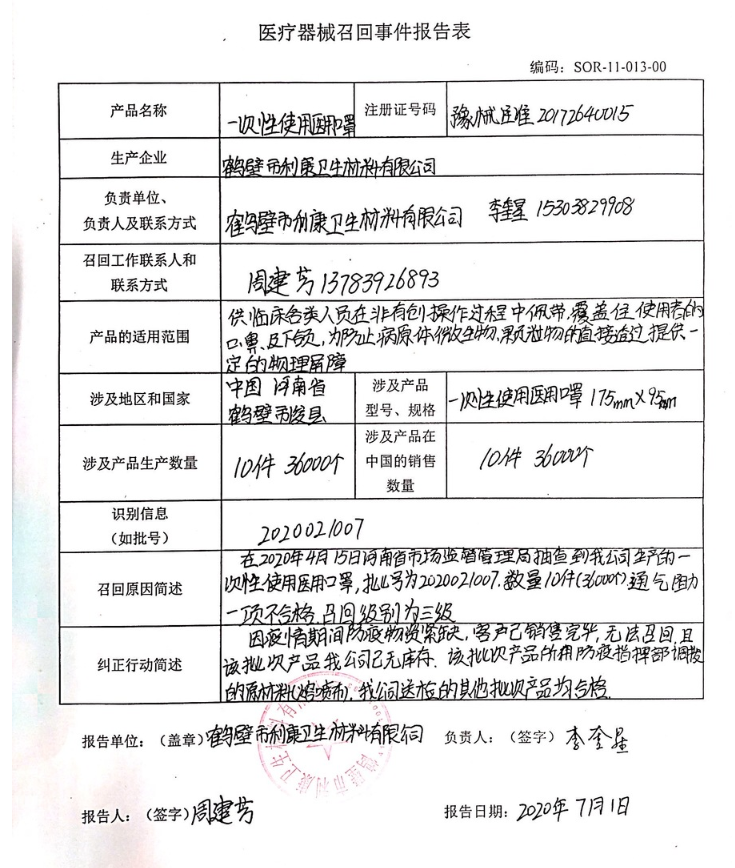 医疗器械召回事件报告表
编码：SOR-11-013-00
产品名称
一次性使用医用口罩
注册证号码
豫械注准20172640015
生产企业
鹤壁市利康卫生材料有限公司
负责单位、
负责人及联系方式
鹤壁市利康卫生材料有限公司 李奎星 15303829908
召回工作联系人和
联系方式
周建芳13783926893
产品的适用范围
供临床各类人员在非有创操作过程中佩带，覆盖住使用者的
口、鼻、及下颌，为防止病原体微生物、颗粒物的直接透过提供一
定的物理屏障
涉及地区和国家
中国 河南省
鹤壁市浚县
涉及产品
型号、规格
一次性使用医用口罩 175mm×95mm
涉及产品生产数量
10件 36000个
涉及产品在
中国的销售
数量
10件 36000个
识别信息
（如批号）
2020021007
召回原因简述
在2020年4月15日河南省市场监督管理局抽查到我公司生产的一
次性使用医用口罩，批号为2020021007.数量10件(36000个).通气阻力
一项不合格.召回级别为三级
纠正行动简述
因疫情期间防疫物资紧缺，客户已销售完毕，无法召回，且
该批次产品我公司已无库存.该批次产品所用防疫指挥部调拨
的原材料(熔喷布).我公司送检的其他批次产品均合格.
报告单位：（盖章）鹤壁市利康卫生材料有限公司
负责人：（签字）李奎星
报告人：（签字）周建芳
报告日期：2020年7月1日